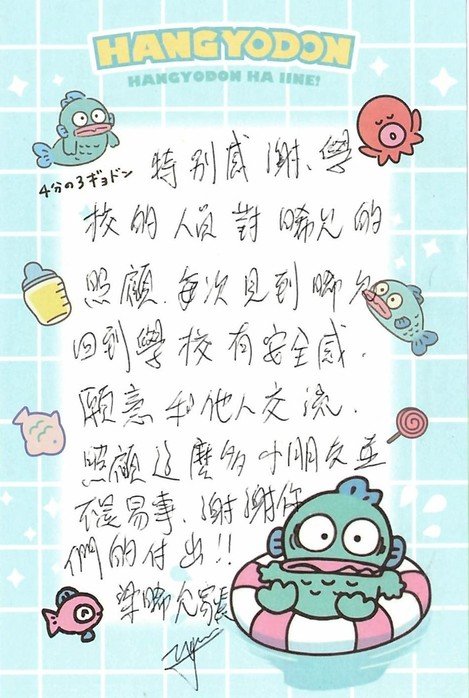 HANGYODON
HANGYODON HA IINE!
4分の3ギョドン
特別感謝、學
校的人員對晞允的
照顧.每次見到晞允
回到學校有安全感.
願意和他人交流.
照顧這麼多小朋友並
不是易事.謝謝你
們的付出!!
梁晞允家長